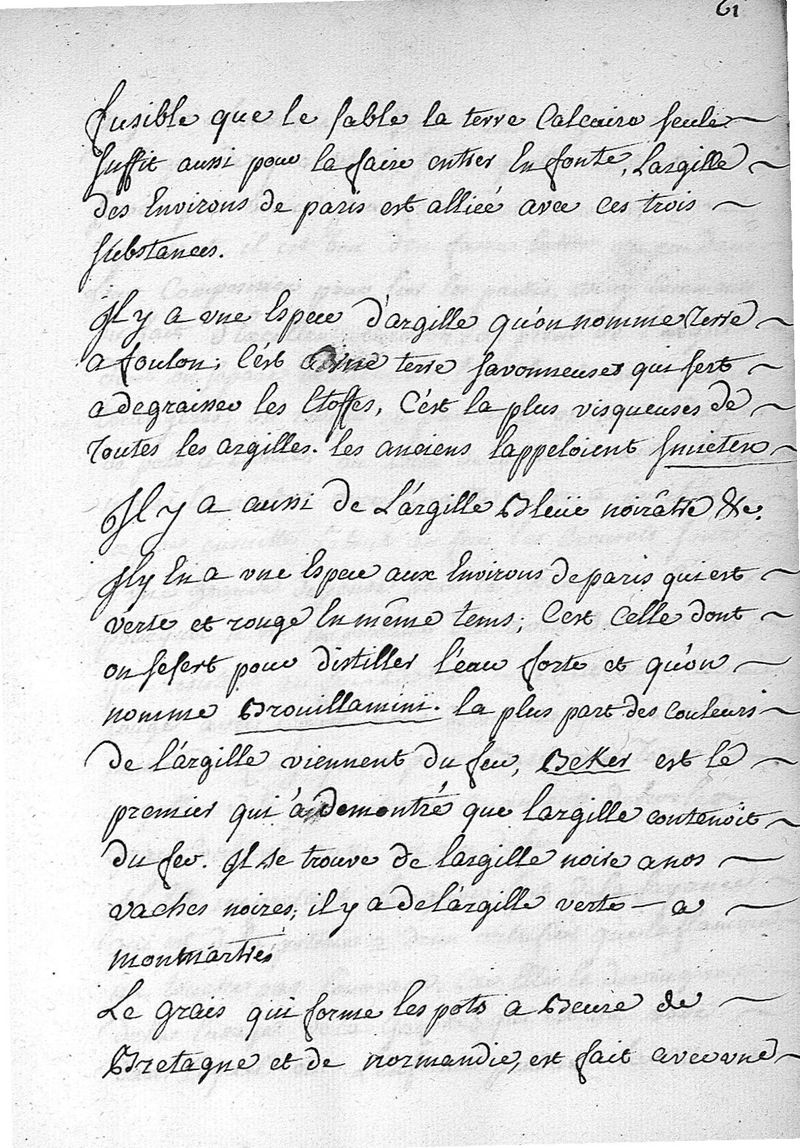 61
fusible que le sable la terre Calcaire seule
suffit aussi pour la faire entrer En fonte, Largille
des Environs de paris est alliée avec ces trois
substances.
Il y a une Espece d'argille qu'on nomme Terre
a foulon; C'est une terre savonneuse qui sert
a degraisser les Etoffes, C'est la plus visqueuses de
Toutes les argilles. les anciens lappeloient
Il y a aussi de L'argille Bleüe noirâtre &c.
Il y En a une Espece aux Environs de paris qui est
verte et rouge En même tems; C'est Celle dont
on se sert pour distiller l'eau forte et qu'on
nomme Brouillamini. la plus part des couleurs
de l'argille viennent du feu, Beker est le
premier qui à demontré que largille contenoit
du fer. Il se trouve de largille noire a nos
vaches noires; il y a de l'argille verte - a
montmartre
Le grais qui forme les pots a Beure de
Bretagne et de normandie, est fait avec une